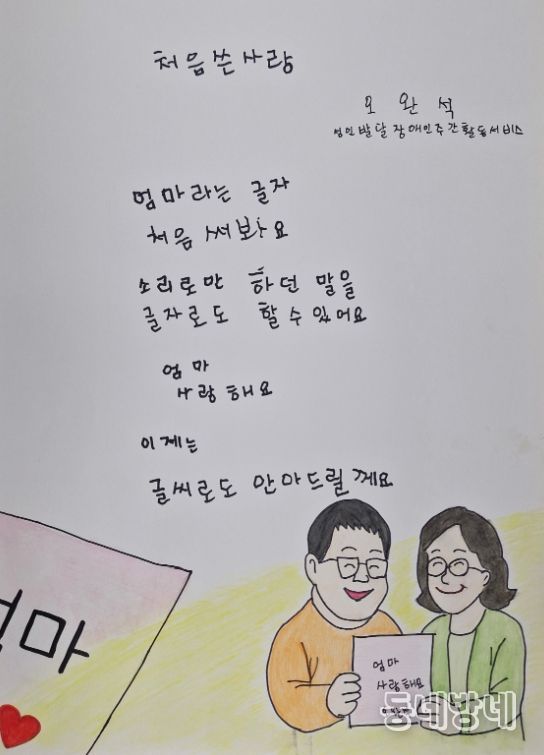 처음쓴사랑
오완석
성인발달장애인주간활동서비스
엄마라는 글자
처음 써봐요
소리로만 하던 말을
글자로도 할수있어요
엄마
사랑해요
이제는
글씨로도 안아드릴께요
엄마
엄마
사랑해요
동네방네